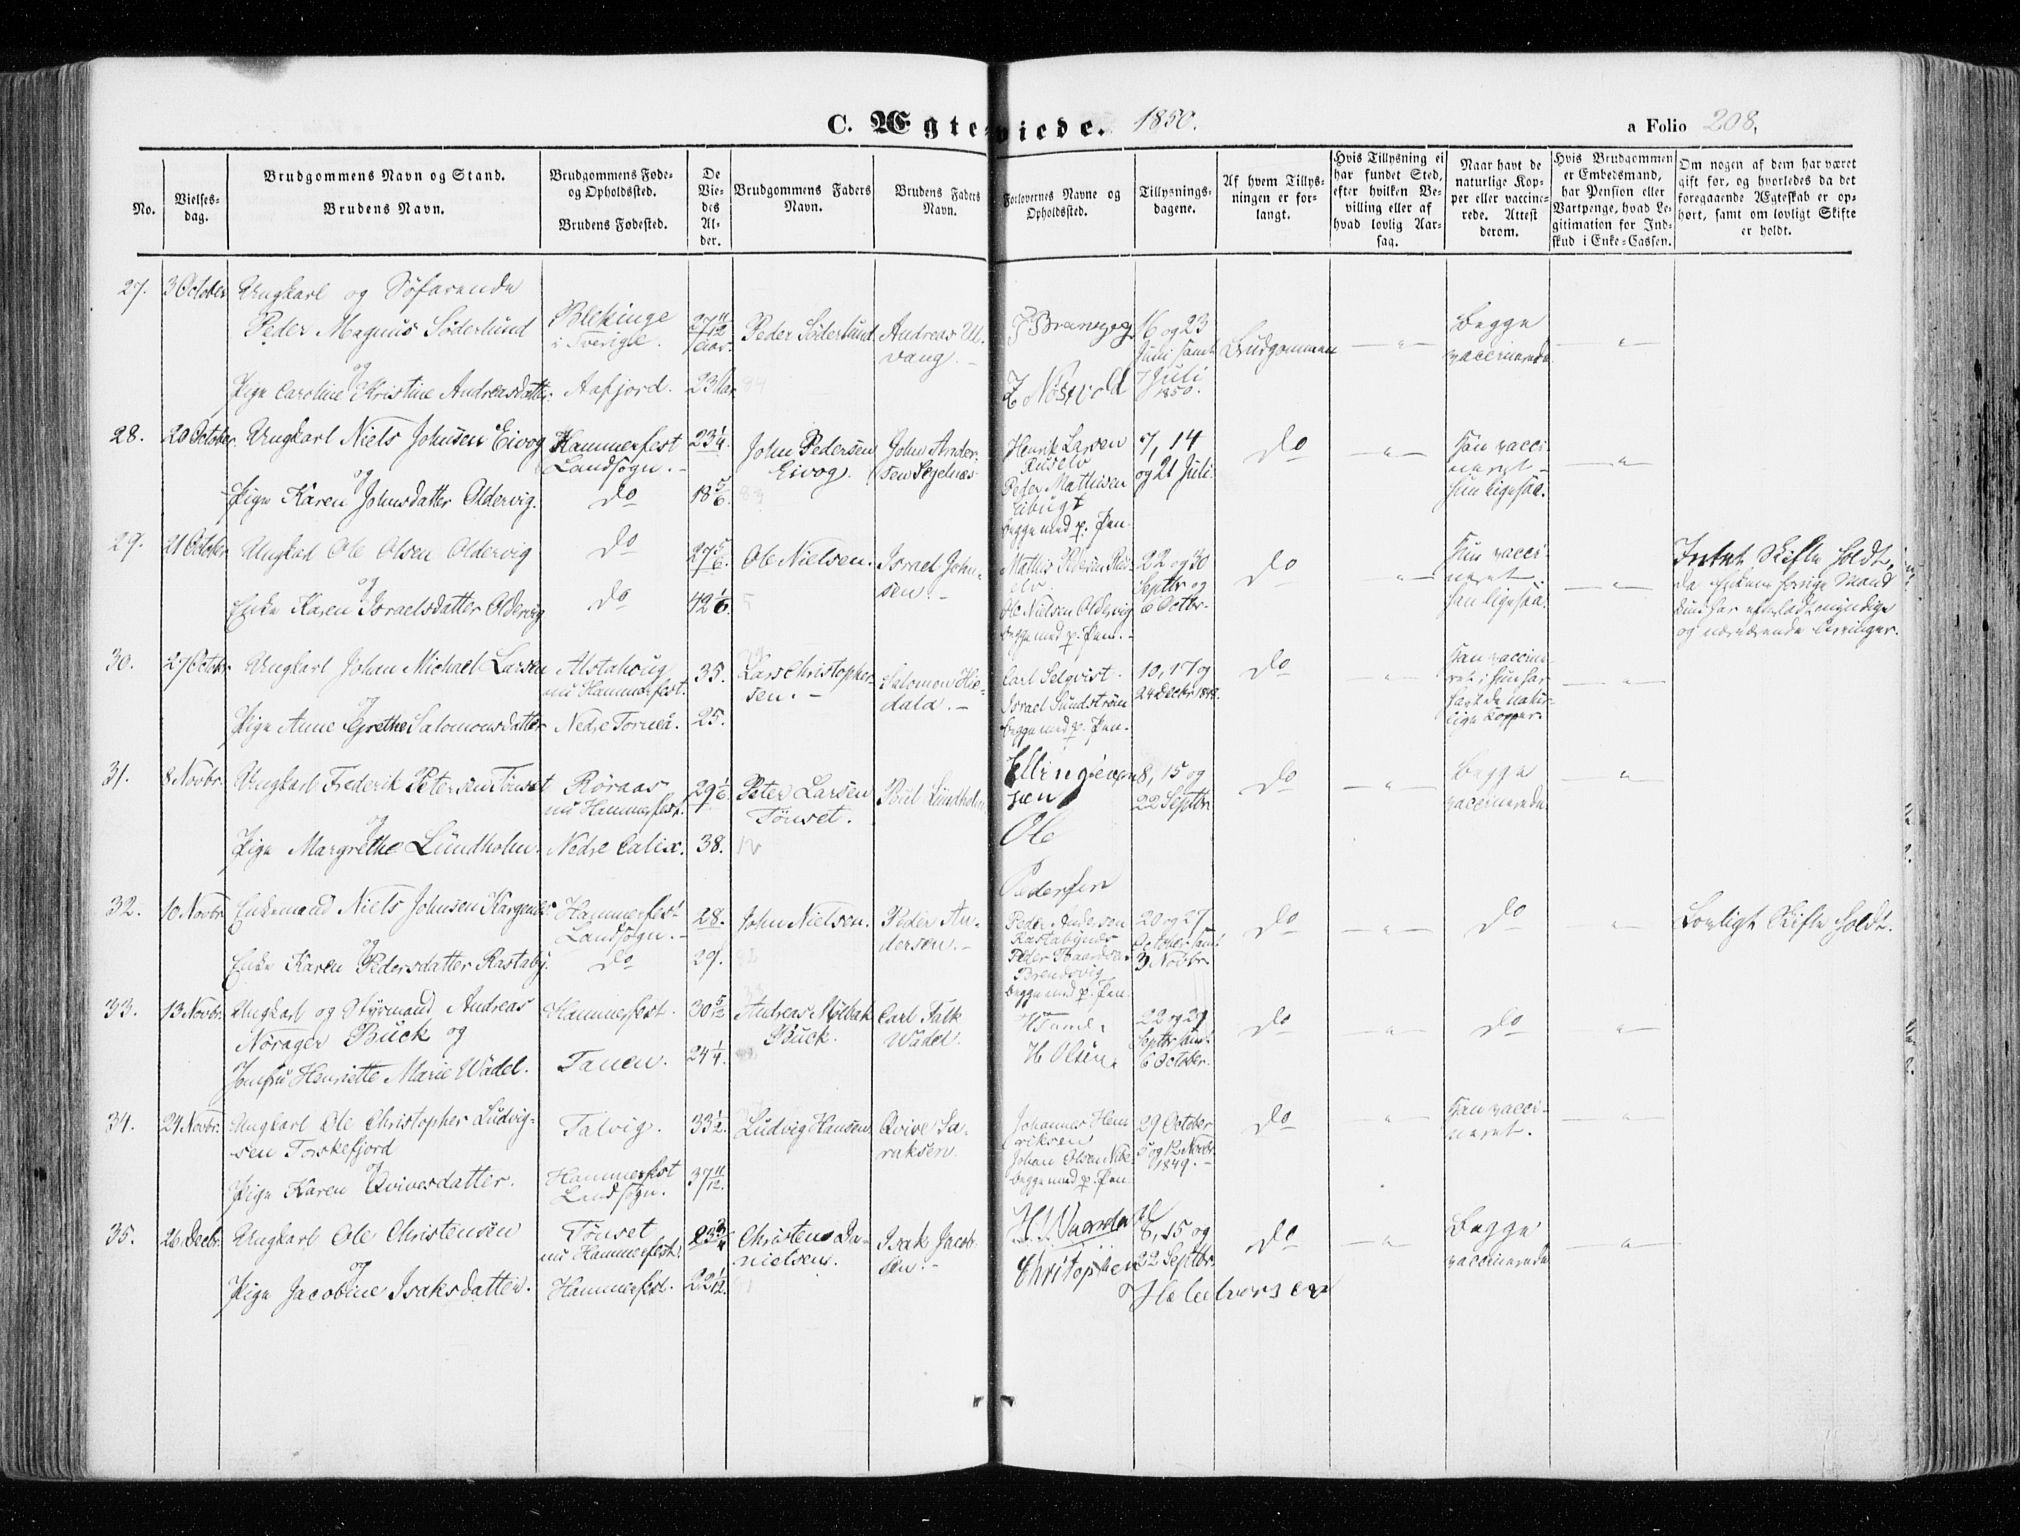 C. Ægteviede. 1850.
a Folio 208.
No.
Vielses-
dag.
Brudgommens Navn og Stand.
Brudens Navn.
Brudgommens Føde-
og Opholdssted.
Brudens Fødested.
De
Vie-
des
Al-
der.
Brudgommens Faders
Navn.
Brudens Faders
Navn.
Forlovernes Navne og
Opholdssted.
Tillysnings-
dagene.
Af hvem Tillys-
ningen er for-
langt.
Hvis Tillysning ei
har fundet Sted,
efter hvilken Be-
villing eller af
hvad lovlig Aar-
sag.
Naar havt de
naturlige Kop-
per eller vaccine-
rede. Attest
derom.
Hvis Brudgommen
er Embedsmand,
har Pension eller
Vartpenge, hvad Le-
gitimation for Ind-
skud i Enke-Cassen.
Om nogen af dem har været
gift før, og hvorledes da det
foregaaende Ægteskab er op-
hørt, samt om lovligt Skifte
er holdt.
27.
3 October
Ungkarl og Søfarende
Peder Magnus Søderlund
og
Pige Caroline Kristine Andreasdatter.
Blekinge
i Sverigle.
Aafjord.
27 11/12
23
Peder Søderlund
Andreas Ul-
vang.
16 og 23
Juni samt
7 Juli
1850.
Brudgommen
Begge
vaccinerede
28.
20 October.
Ungkarl Niels Johnsen Eivog
og
Pige Karen Johnsdatter Oldervig.
Hammerfest
Landsogn.
Do
23 1/4.
18 5/6.
John Pedersen
Eivog.
John Ander-
sen
Henrik Larsen
Peter Mathisen
begge med p. Pen.
7, 14
og 21 Juli
Do
Han vacci-
neret
hun ligesaa.
29.
21 October
Ungkarl Ole Olsen Oldervig
og
Enke Karen Israelsdatter Oldervig
Do
Do
27 5/6.
42 1/6.
Ole Nielsen.
Israel John-
sen.
Ole Nielsen Oldervig
begge med p. Pen.
22 og 30
Septbr og
6 Octbr.
Do
Hun vacci-
neret
han ligesaa.
Intet Skifte holdt,
da Enkens forrige Mand
kun har efterladt myndige
og nærværende Arvinger.
30.
27 Octbr.
Ungkarl Johan Michael Larsen
og
Pige Anne Grethe Salomonsdatter
Alstahoug
nu Hammerfest.
Nedre Torneå.
35.
25.
Lars Christopher-
sen.
Salomon Hie-
tala.
Carl Selqvist.
Israel Sundstrøm
begge med p. Pen.
10, 17 og
24 Decbr
Do
Han vaccine-
ret, hun har
havt de natur-
lige Kopper.
31.
8 Novbr.
Ungkarl Frederik Petersen Tønset
og
Pige Margrethe Lundholm.
Røraas
nu Hammerfest.
Nedre Calix.
29 1/6.
38.
Peter Larsen
Tønset.
Poul Lundholm
Ole
Pedersen
8, 15 og
22 Septbr.
Do
Begge
vaccinerede
32.
10 Novbr.
Enkemand Niels Johnsen Kargenes
og
Enke Karen Pedersdatter Rastaby.
Hammerfest
Landsogn.
Do
28.
29.
John Nielsen.
Peder An-
dersen.
Peder Andersen
begge med p. Pen.
20 og 27
October samt
3 Novbr.
Do
Do
Lovligt Skifte holdt.
33.
13 Novbr.
Ungkarl og Styrmand Andreas
Nørager Buck og
Jomfru Henriette Marie Wadel.
Hammerfest.
Tanen.
30 5/12
24 1/4.
Andreas Mølbak
Buck.
Carl Falk
Wadel.
H Olsen.
22 og 29
Septbr samt
6 October.
Do
Do
34.
24 Novbr.
Ungkarl Ole Christopher Ludvig-
sen Torskefjord
og
Pige Karen Qvivesdatter.
Talvig.
Hammerfest
Landsogn.
33 1/2.
37 11/12.
Ludvig Hansen
Qvive Sa-
raksen.
Johannes Hen-
riksen
Johan Olsen
begge med p. Pen.
29 October
5 og 12 Novbr.
1849.
Do
Han vacci-
neret.
35.
26 Decbr.
Ungkarl Ole Christensen
og
Pige Jacobine Isaksdatter.
Tønset
nu Hammerfest.
Hammerfest.
23 3/4
22 1/12.
Christen Da-
nielsen.
Isak Jacob-
sen.
Christophen
Halvorsen
8, 15 og
22 Septbr.
Do
Begge
vaccinerede